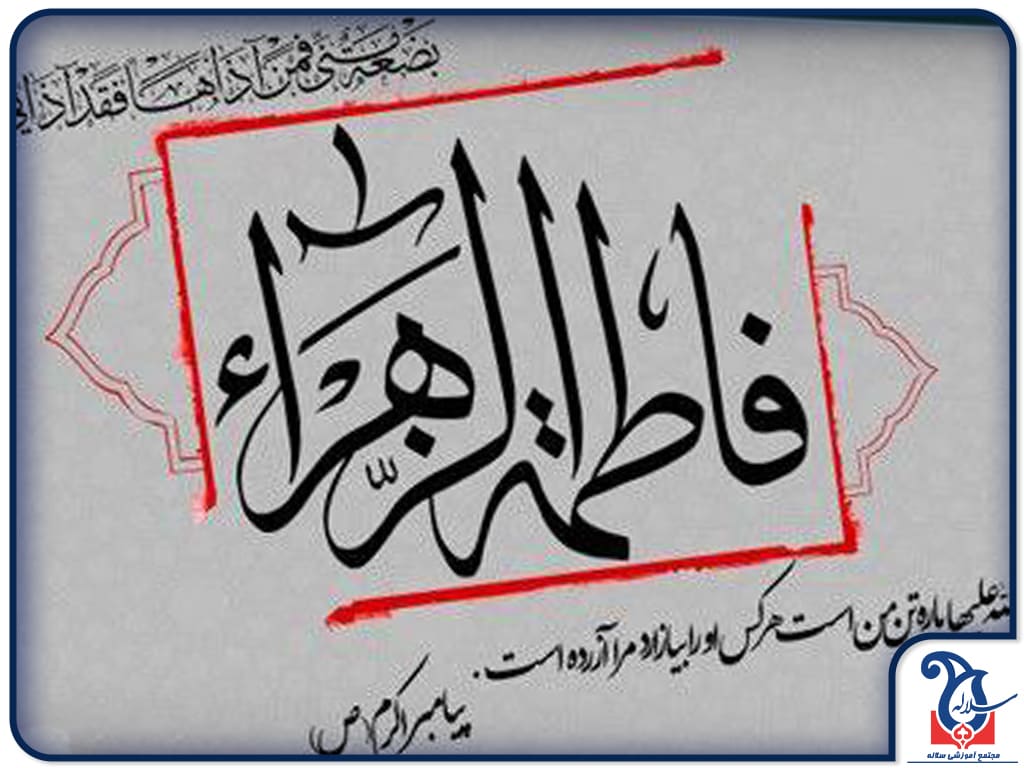 بضعة منی فمن آذاها فقد آذانی
فاطمة الزهراء
علیها پاره تن من است هر کس او را بیازارد مرا آزرده است.
پیامبر اکرم (ص)
سلاله
مجتمع آموزشی سلاله